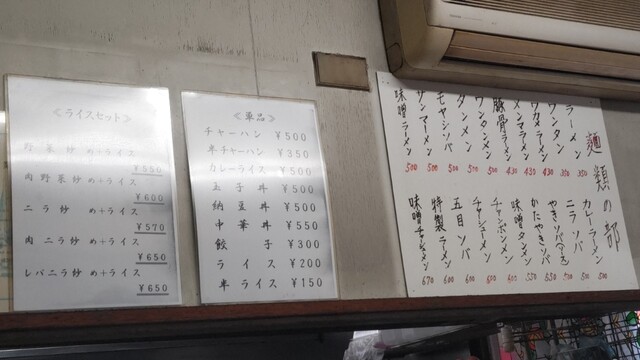 ≪ライスセット≫
野菜炒め+ライス
¥550
肉野菜炒め+ライス
¥600
ニラ炒め+ライス
¥570
肉ニラ炒め+ライス
¥650
レバニラ炒め+ライス
¥650
≪単品≫
チャーハン ¥500
半チャーハン ¥350
カレーライス ¥500
玉子丼 ¥500
納豆丼 ¥500
中華丼 ¥550
餃子 ¥300
ライス ¥200
半ライス ¥150
麺類の部
ラーメン 350
ワンタン 350
ワカメラーメン 430
メンマラーメン 430
豚骨ラーメン 430
ワンタンメン 500
タンメン 500
モヤシソバ 500
サンマーメン 500
味噌ラーメン 500
カレーラーメン 500
ニラソバ 500
やきソバ 550
かたやきソバ 550
味噌タンメン 600
チャンポンメン 600
チャーシューメン 600
五目ソバ 600
特製ラーメン 600
味噌チャーシューメン 670